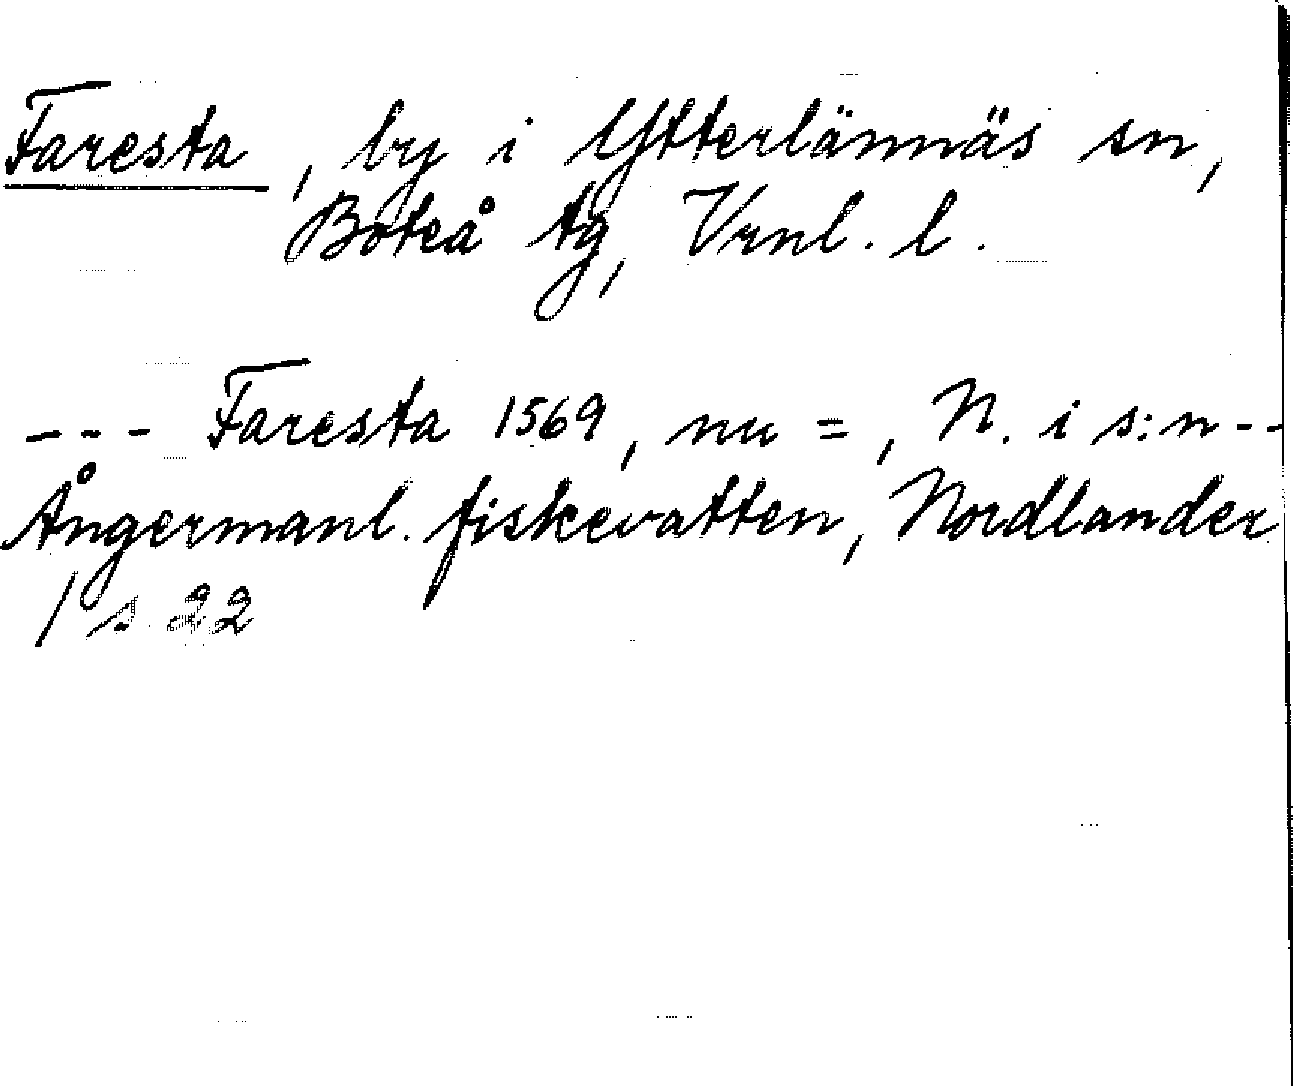 Faresta, by i Ytterlännäs sn,
Boteå tg, Vrnl. l.
--- Faresta 1569, nu =, N. i s:n--
Ångermanl. fiskevatten, Nordlander
/ s. 22